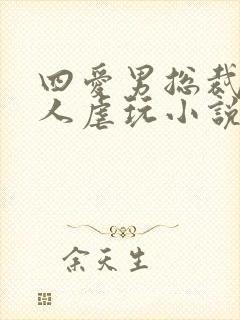 四愛男总裁
人虐玩小說
余天生